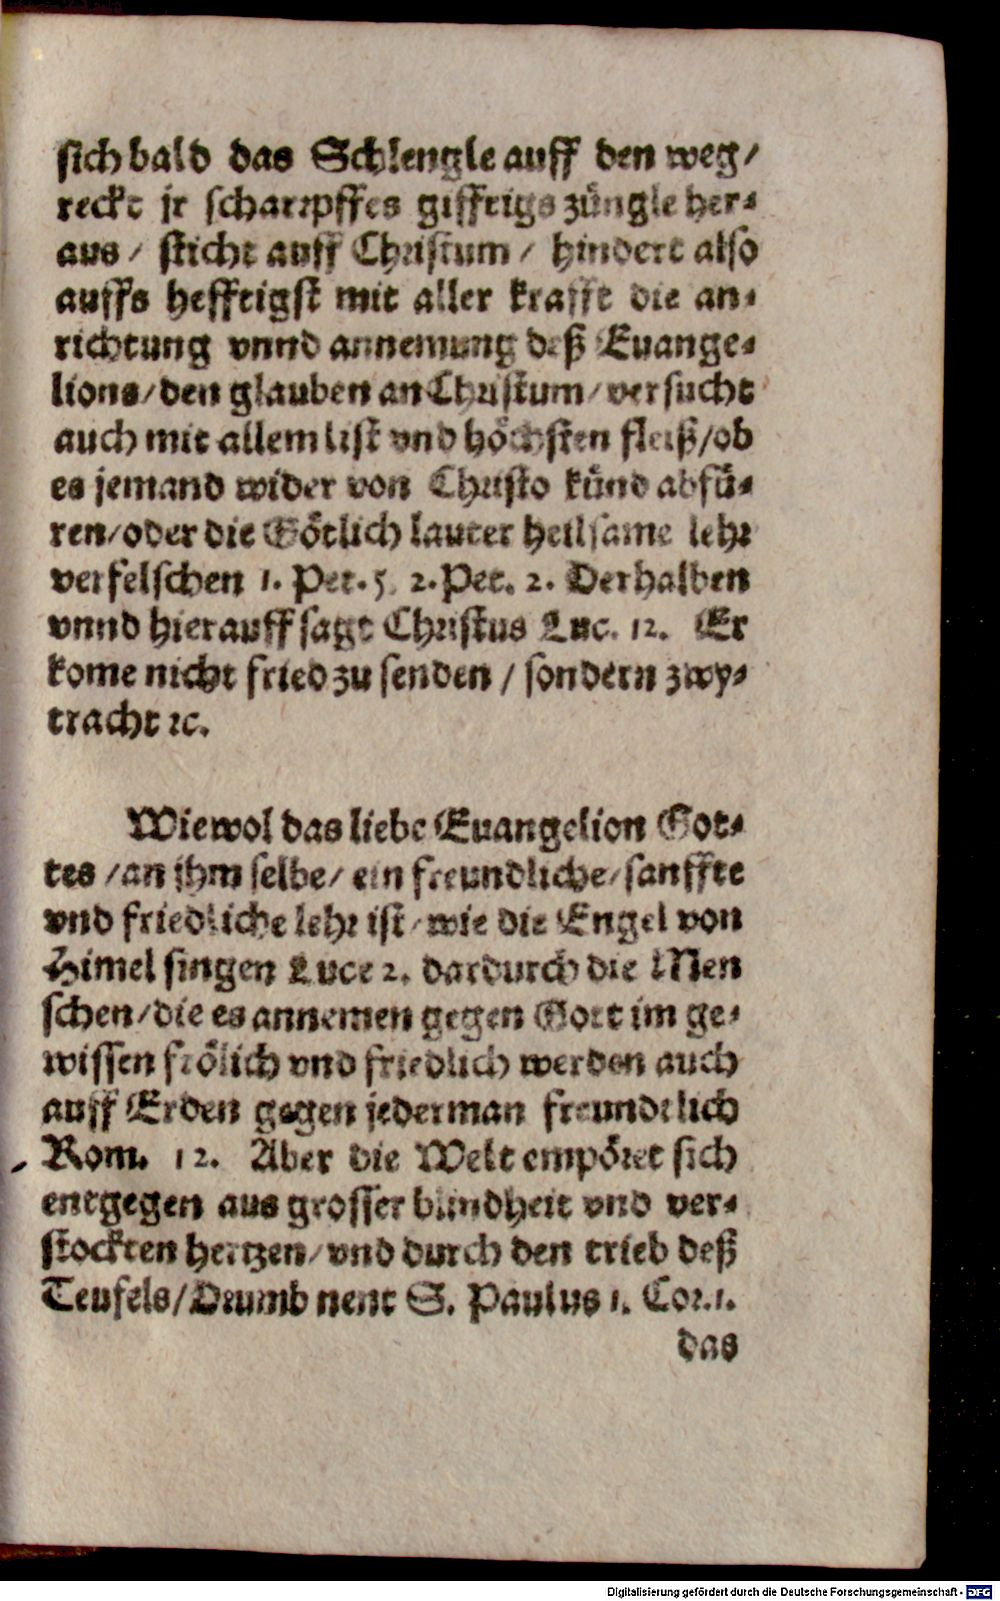 sich bald das Schlengle auff den weg/
reckt jr scharrpffes gifftigs züngle her-
aus / sticht auff Christum / hindert also
auffs hefftigst mit aller krafft die an-
richtung vnnd annemung deß Euange-
lions/den glauben an Christum/versucht
auch mit allem list vnd höchsten fleiß/ob
es jemand wider von Christo künd abfü-
ren/oder die Götlich lauter heilsame lehr
verfelschen 1. Pet. 5. 2. Pet. 2. Derhalben
vnnd hierauff sagt Christus Luc. 12. Er
kome nicht fried zu senden / sondern zwy-
tracht ꝛc.
Wiewol das liebe Euangelion Got-
tes /an jhm selbe/ ein freundliche/sanffte
vnd friedliche lehr ist/wie die Engel von
Himel singen Luce 2. dardurch die Men
schen/die es annemen gegen Gott im ge-
wissen frölich vnd friedlich werden auch
auff Erden gegen jederman freundtlich
Rom. 12. Aber die Welt empöret sich
entgegen aus grosser blindheit vnd ver-
stockten hertzen/vnd durch den trieb deß
Teufels/Drumb nent S. Paulus 1. Cor. 1.
das
Digitalisierung gefördert durch die Deutsche Forschungsgemeinschaft - DFG